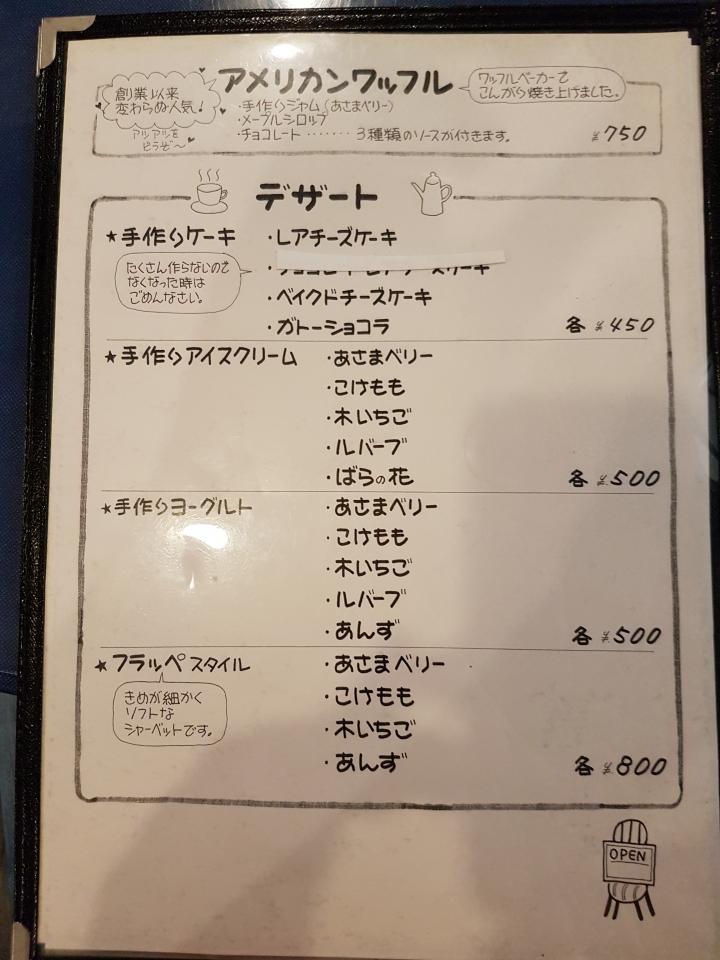 創業以来
変わらぬ人気!
アツアツを
どうぞ〜
アメリカンワッフル
ワッフルベーカーで
こんがり焼き上げました。
・手作りジャム(あさまベリー)
・メープルシロップ
・チョコレート ······· 3種類のソースが付きます。 ¥750
デザート
★手作りケーキ ・レアチーズケーキ
たくさん作らないので
なくなった時は
ごめんなさい。
・チョコレートレアチーズケーキ
・ベイクドチーズケーキ
・ガトーショコラ 各 ¥450
★手作りアイスクリーム ・あさまベリー
・こけもも
・木いちご
・ルバーブ
・ばらの花 各 ¥500
★手作りヨーグルト ・あさまベリー
・こけもも
・木いちご
・ルバーブ
・あんず 各 ¥500
★フラッペスタイル ・あさまベリー
きめが細かく
ソフトな
シャーベットです。
・こけもも
・木いちご
・あんず 各 ¥800
OPEN